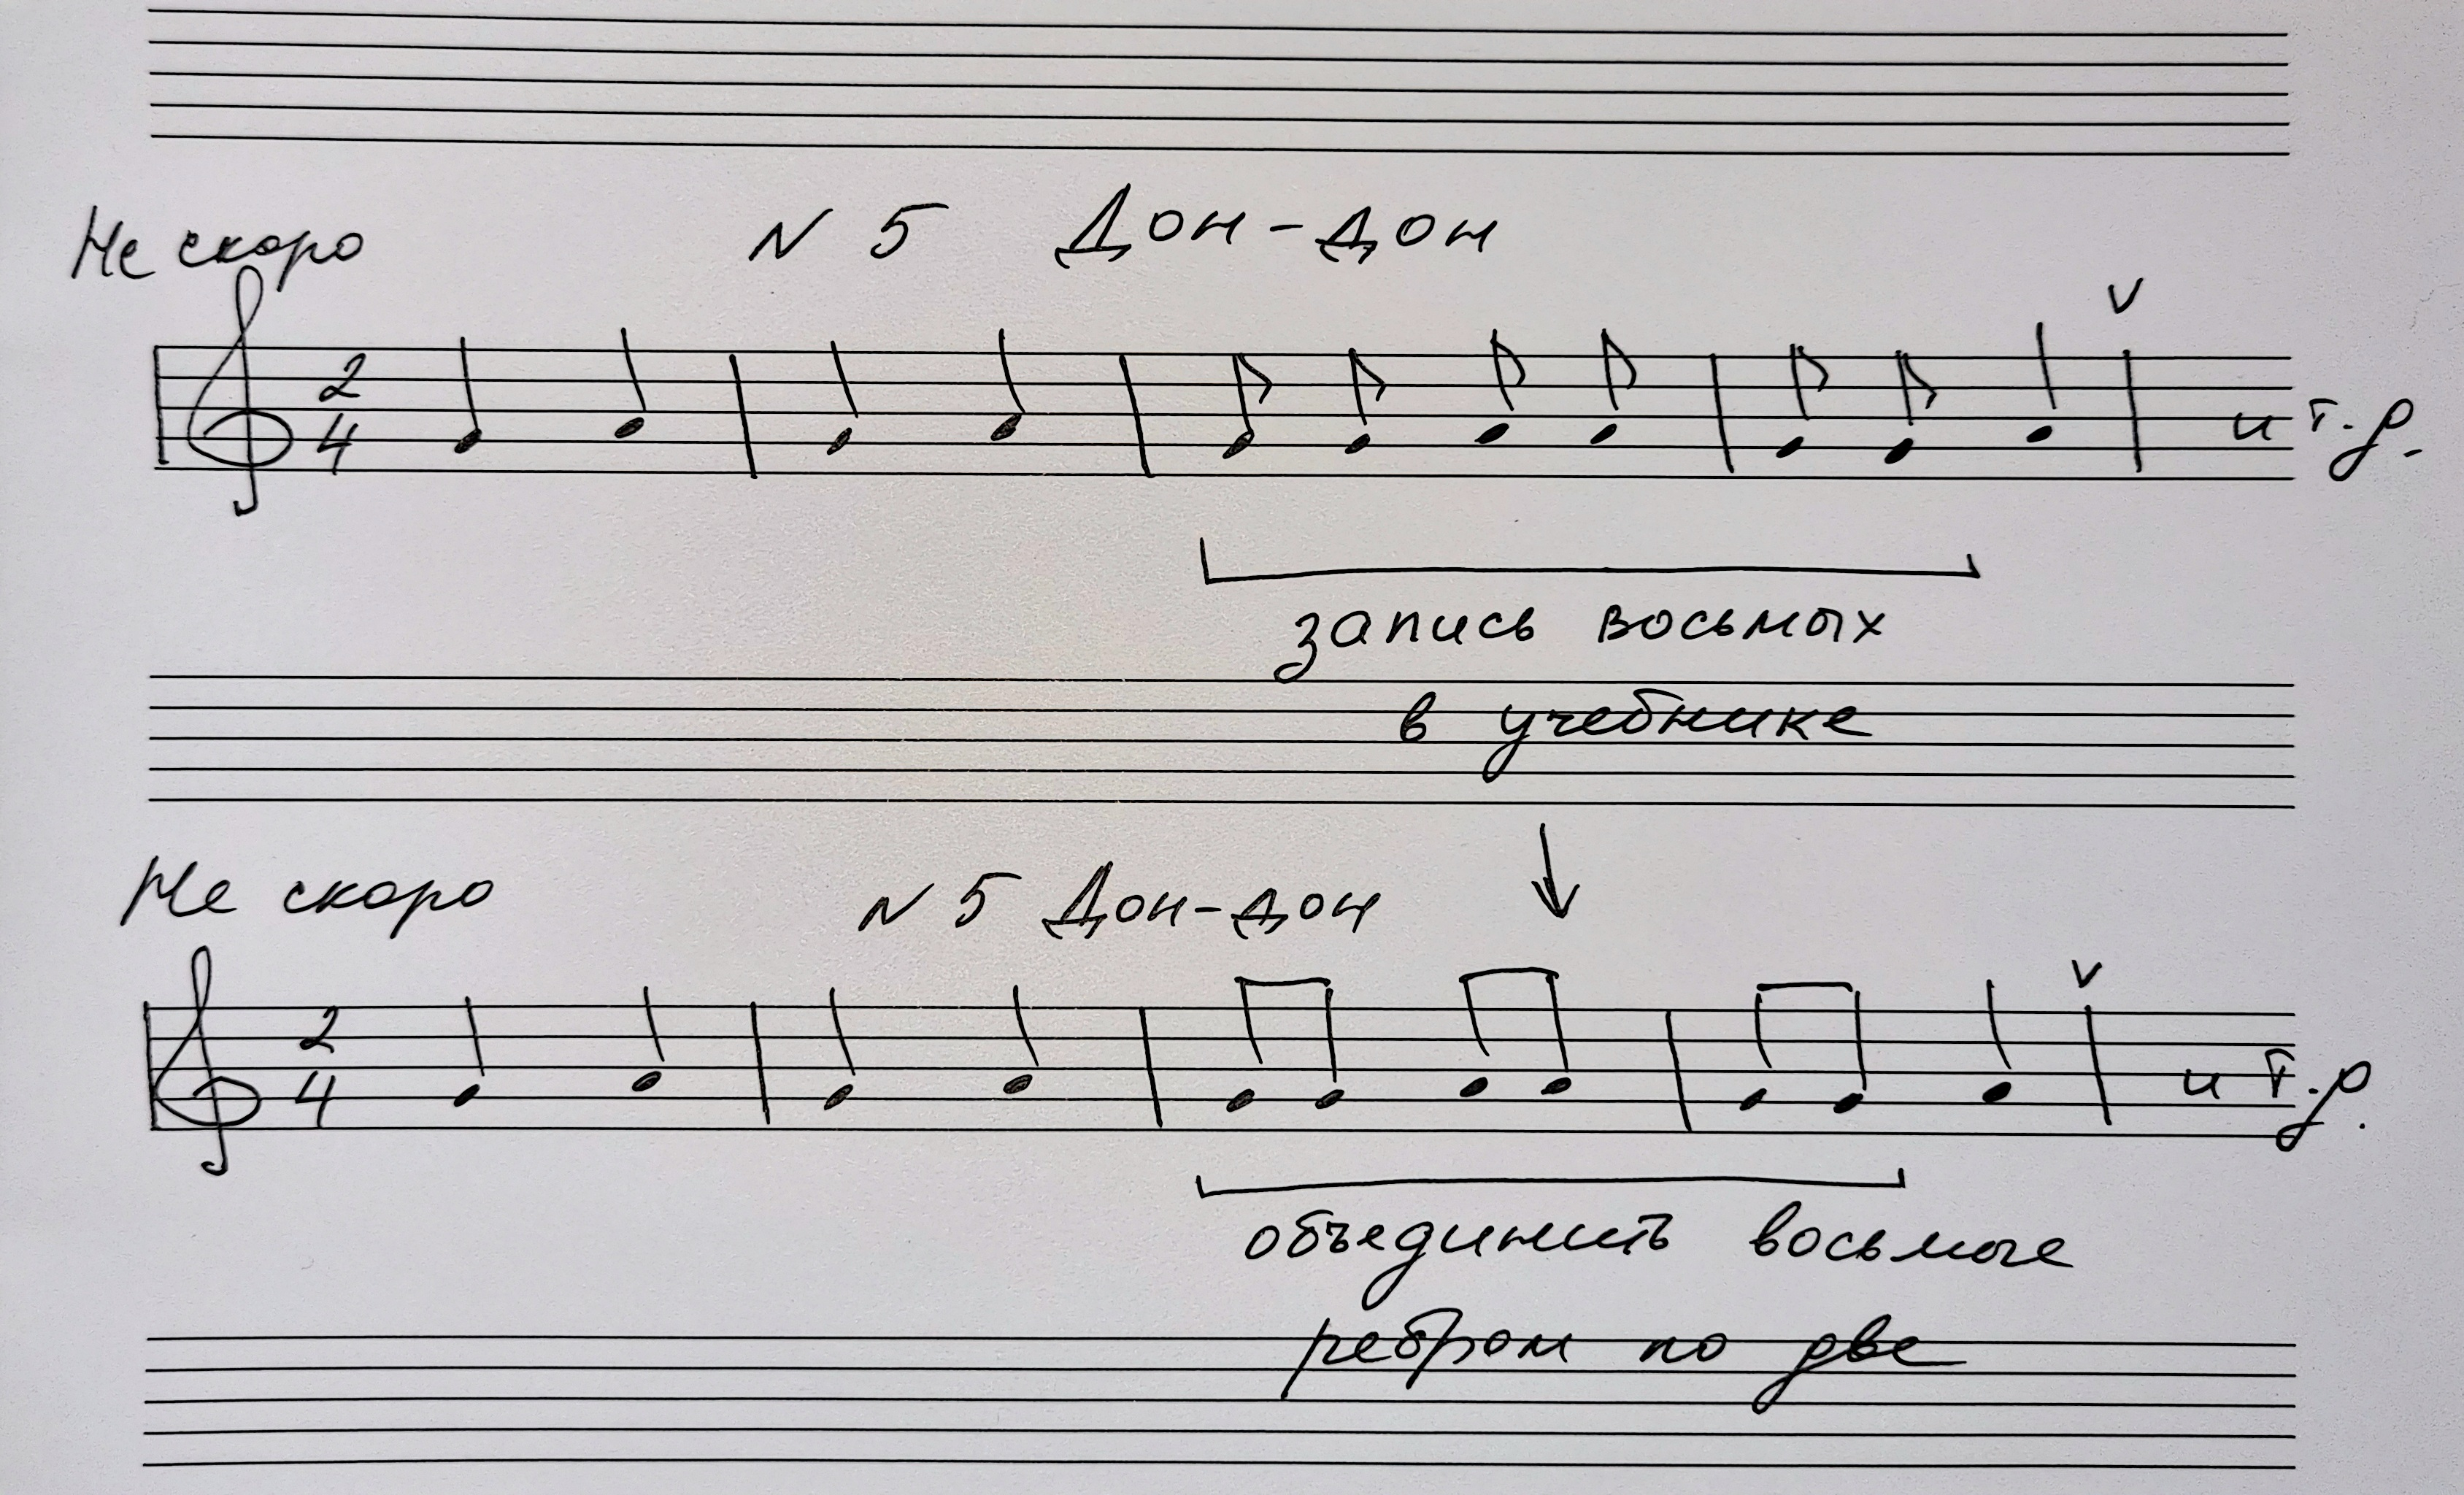 Не скоро N 5 Дон-дон
V
2
4
и т.д.
запись восьмых
в учебнике
Не скоро N 5 Дон-дон
V
2
4
и т.д.
объединить восьмые
ребром по две